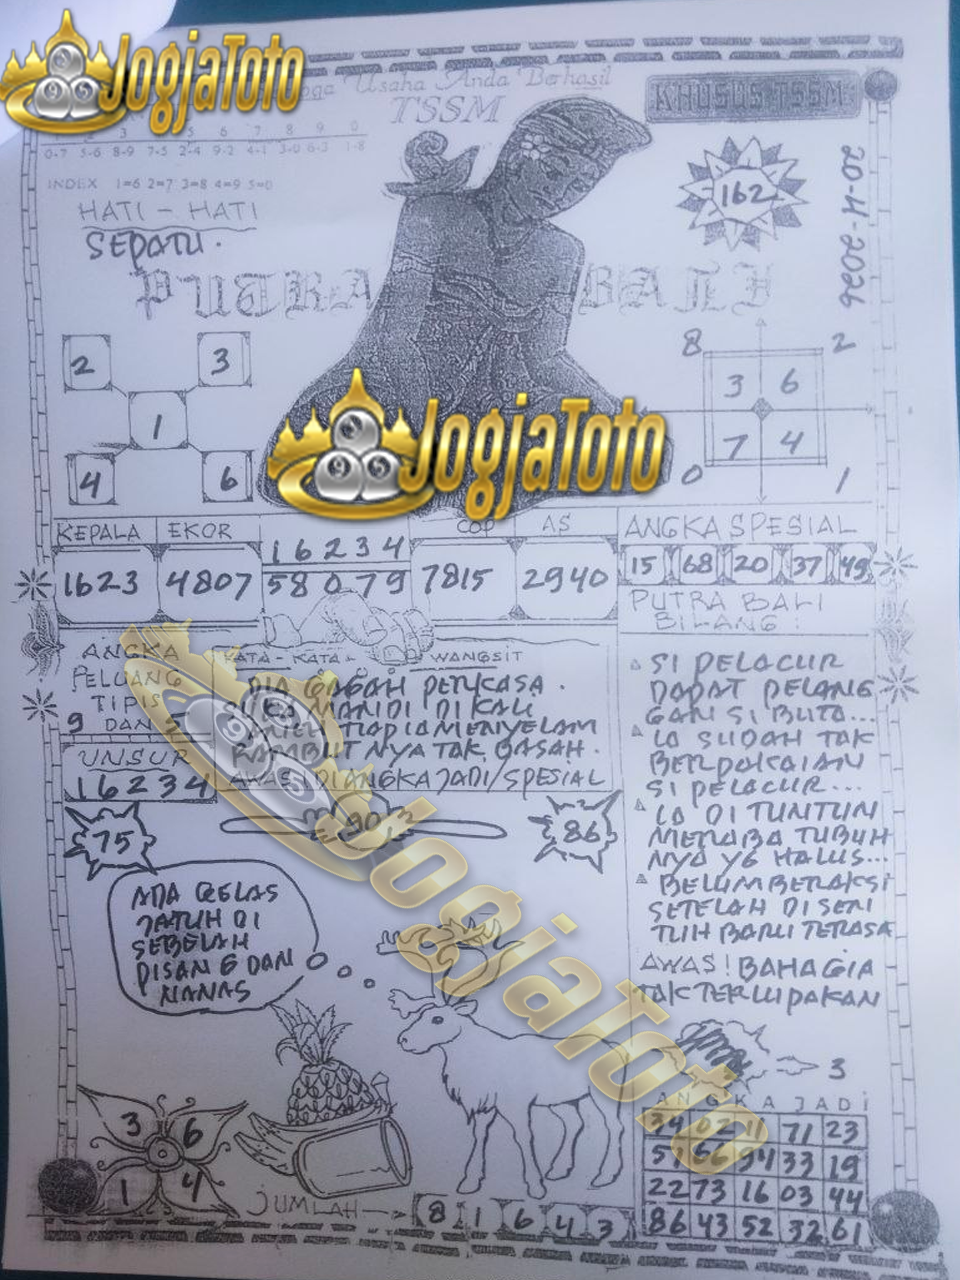 JogjaToto
Usaha Anda Berhasil
TSSM
KHUSUS TSSM
3 4 5 6 7 8 9 0
0-7 5-6 8-9 7-5 2-4 9-2 4-1 3-0 6-3 1-8
INDEX 1=6 2=7 3=8 4=9 5=0
162
20-4-2026
HATI - HATI
SEPATU.
PUTRA BALI
2 3
1
4 6
8 2
3 6
7 4
0 1
JogjaToto
KEPALA EKOR COP AS
1623 4807
16234
58079
7815 2940
ANGKA SPESIAL
15 68 20 37 49
PUTRA BALI
BILANG :
ANGKA
PELUANG
TIPIS
9 DAN
UNSUR
16234
KATA - KATA WANGSIT
DIA GAGAH PERKASA.
SUKA MANDI DI KALI
TIAP IA MENYELAM
RAMBUTNYA TAK BASAH.
AWAS! DIANGKA JADI/SPESIAL
SI PELACUR
DAPAT PELANG
GAN SI BUTA...
IA SUDAH TAK
BERPAKAIAN
SI PELACUR...
IA DI TUNTUN
MERABA TUBUH
NYA YG HALUS...
BELUM BERAKSI
SETELAH DI SEN
TUH BARU TERASA
AWAS! BAHAGIA
TAK TERLUPAKAN
75
90
86
ADA GELAS
JATUH DI
SEBELAH
PISANG DAN
NANAS
JogjaToto
3
3 6
1 4
JUMLAH
8 1 6 4 3
ANGKA JADI
34 02 11 71 23
51 66 94 33 19
22 73 16 03 44
86 43 52 32 61